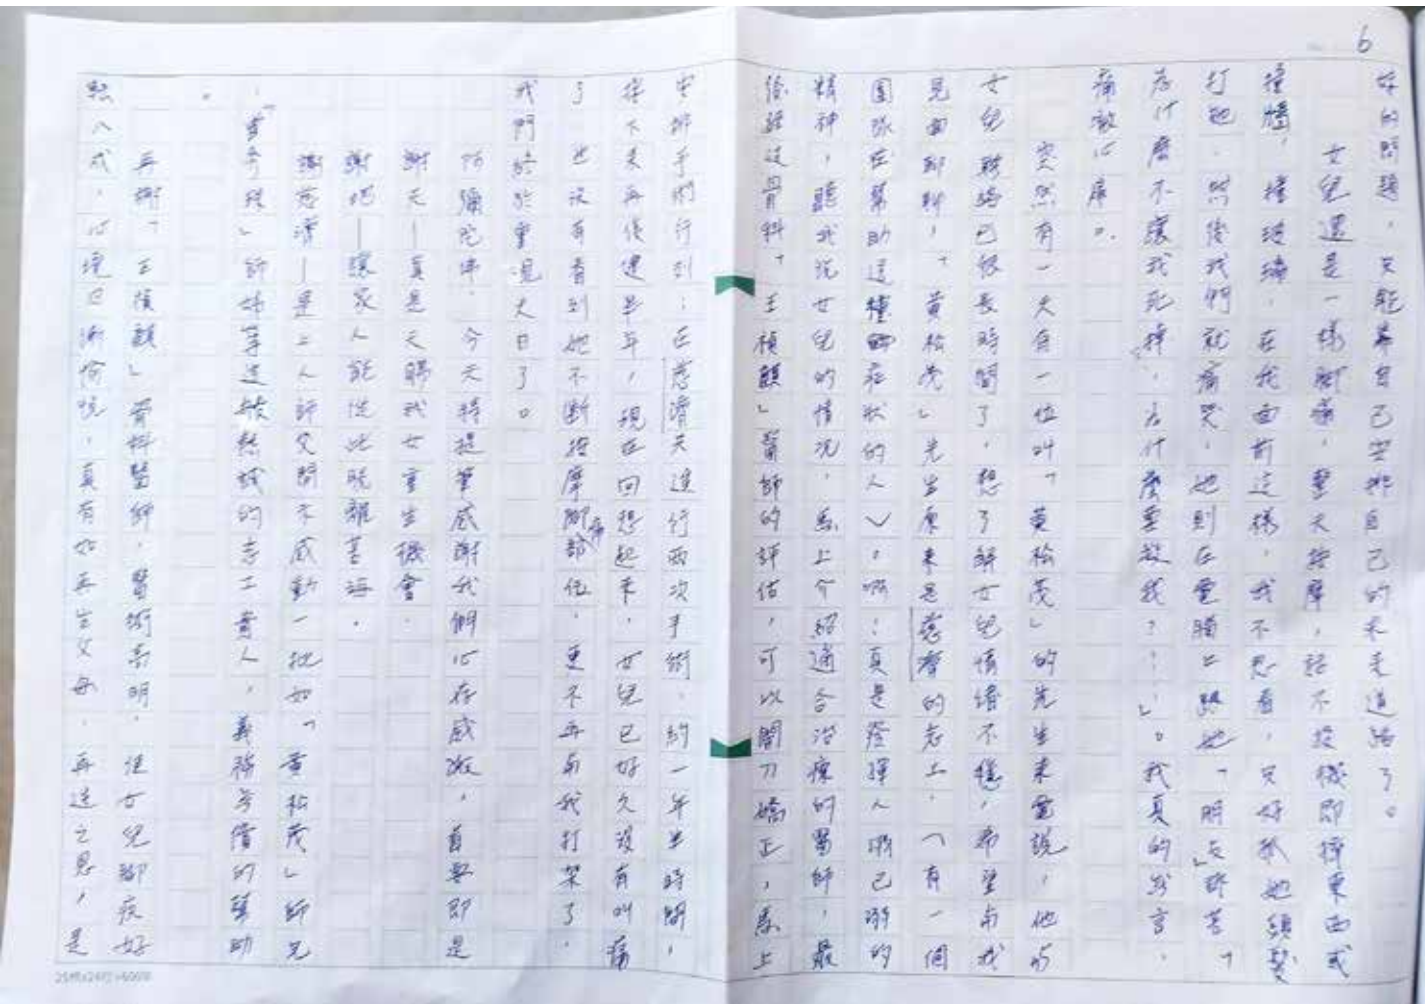 6
好的問題，只能靠自己安排自己的未來道路了。
女兒還是一樣腳痛，整天按摩，話不投機即摔東西或
撞牆，撞玻璃，在我面前這樣，我不忍看，只好抓她頭髮
打她．然後我們就痛哭．她則在電腦上跟她「朋友」訴苦「
為什麼不讓我死掉，為什麼要救我？？」。我真的
痛徹心扉。
突然有一天自一位叫「黃松茂」的先生來電說，他與
女兒聯絡已很長時間了，想了解女兒情緒不穩，希望與我
見面聊聊，「黃松茂」先生原來是慈濟的志工．（有一個
團隊在幫助這種症狀的人）．啊！真是發揮人溺己溺的
精神，聽我說女兒的情況，馬上介紹適合治療的醫師，最
後經過骨科「王禎麒」醫師的評估，可以開刀矯正，馬上
安排手術行列：在慈濟共進行兩次手術．約一年半時間，
接下來再復健半年，現在回想起來．女兒已好久沒有叫痛
了，也沒有看到她不斷按摩腳痛部位．更不再與我打架了．
我們終於重見天日了。
阿彌陀佛．今天特提筆感謝我們心存感激，首要即是
謝天—真是天賜我女重生機會．
謝地—讓家人能從此脫離苦海．
謝慈濟—是上人師父間不感動一批如「黃松茂」師兄
，「
」師姊等這般熱誠的志工貴人，義務考償的幫助
。
再謝「王禎麒」骨科醫師．醫術高明．使女兒腳疾好
轉八成，心境已漸愉悅，真有如再生父母．再造之恩，是